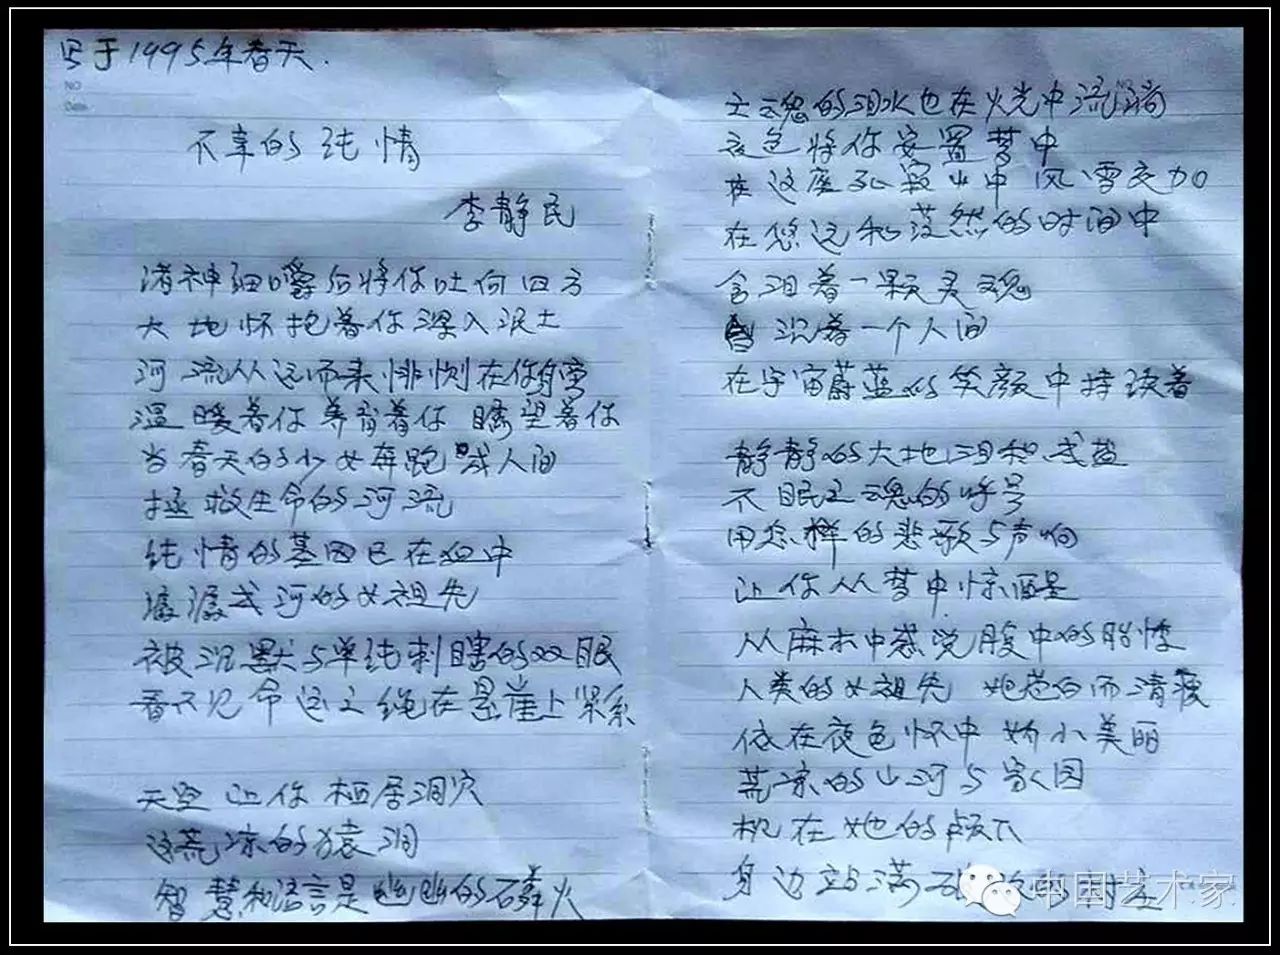 写于1995年春天.
NO
Date
不幸的纯情
李静民
诸神细嚼后将你吐向四方
大地怀抱着你深入泥土
河流从远而来悱恻在你身旁
温暖着你 养育着你 瞩望着你
当春天的少女奔跑 成人间
拯救生命的河流
纯情的基因已在血中
潺潺成河的女祖先
被沉默与单纯刺瞎的双眼
看不见命运之绳在悬崖上紧系
天空让你栖居洞穴
这荒凉的猿洞
智慧和语言是幽幽的磷火
亡魂的泪水也在火光中流淌
夜色将你安置梦中
在这座孤寂山中 风雪交加
在悠远和茫然的时间中
含泪着一颗灵魂
沉着一个人间
在宇宙蔚蓝的笑颜中持续着
静静的大地泪和成盐
不眠之魂的呼号
用怎样的悲歌与声响
让你从梦中惊醒
从麻木中感觉腹中的胎悸
人类的女祖先 她苍白而清瘦
依在夜色怀中 娇小美丽
荒凉的山河与家园
枕在她的颅下
身边站满
中国艺术家